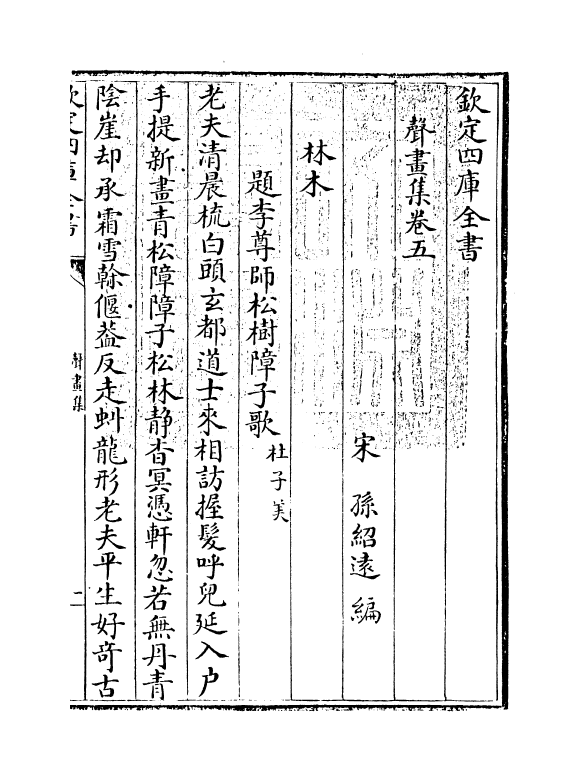 欽定四庫全書
聲畫集卷五
宋 孫紹遠 編
林木
題李尊師松樹障子歌 杜子美
老夫清晨梳白頭玄都道士來相訪握髮呼兒延入户
手提新畫青松障障子松林静杳冥憑軒忽若無丹青
陰崖却承霜雪榦偃葢反走虬龍形老夫平生好竒古
欽定四庫全書
聲畫集